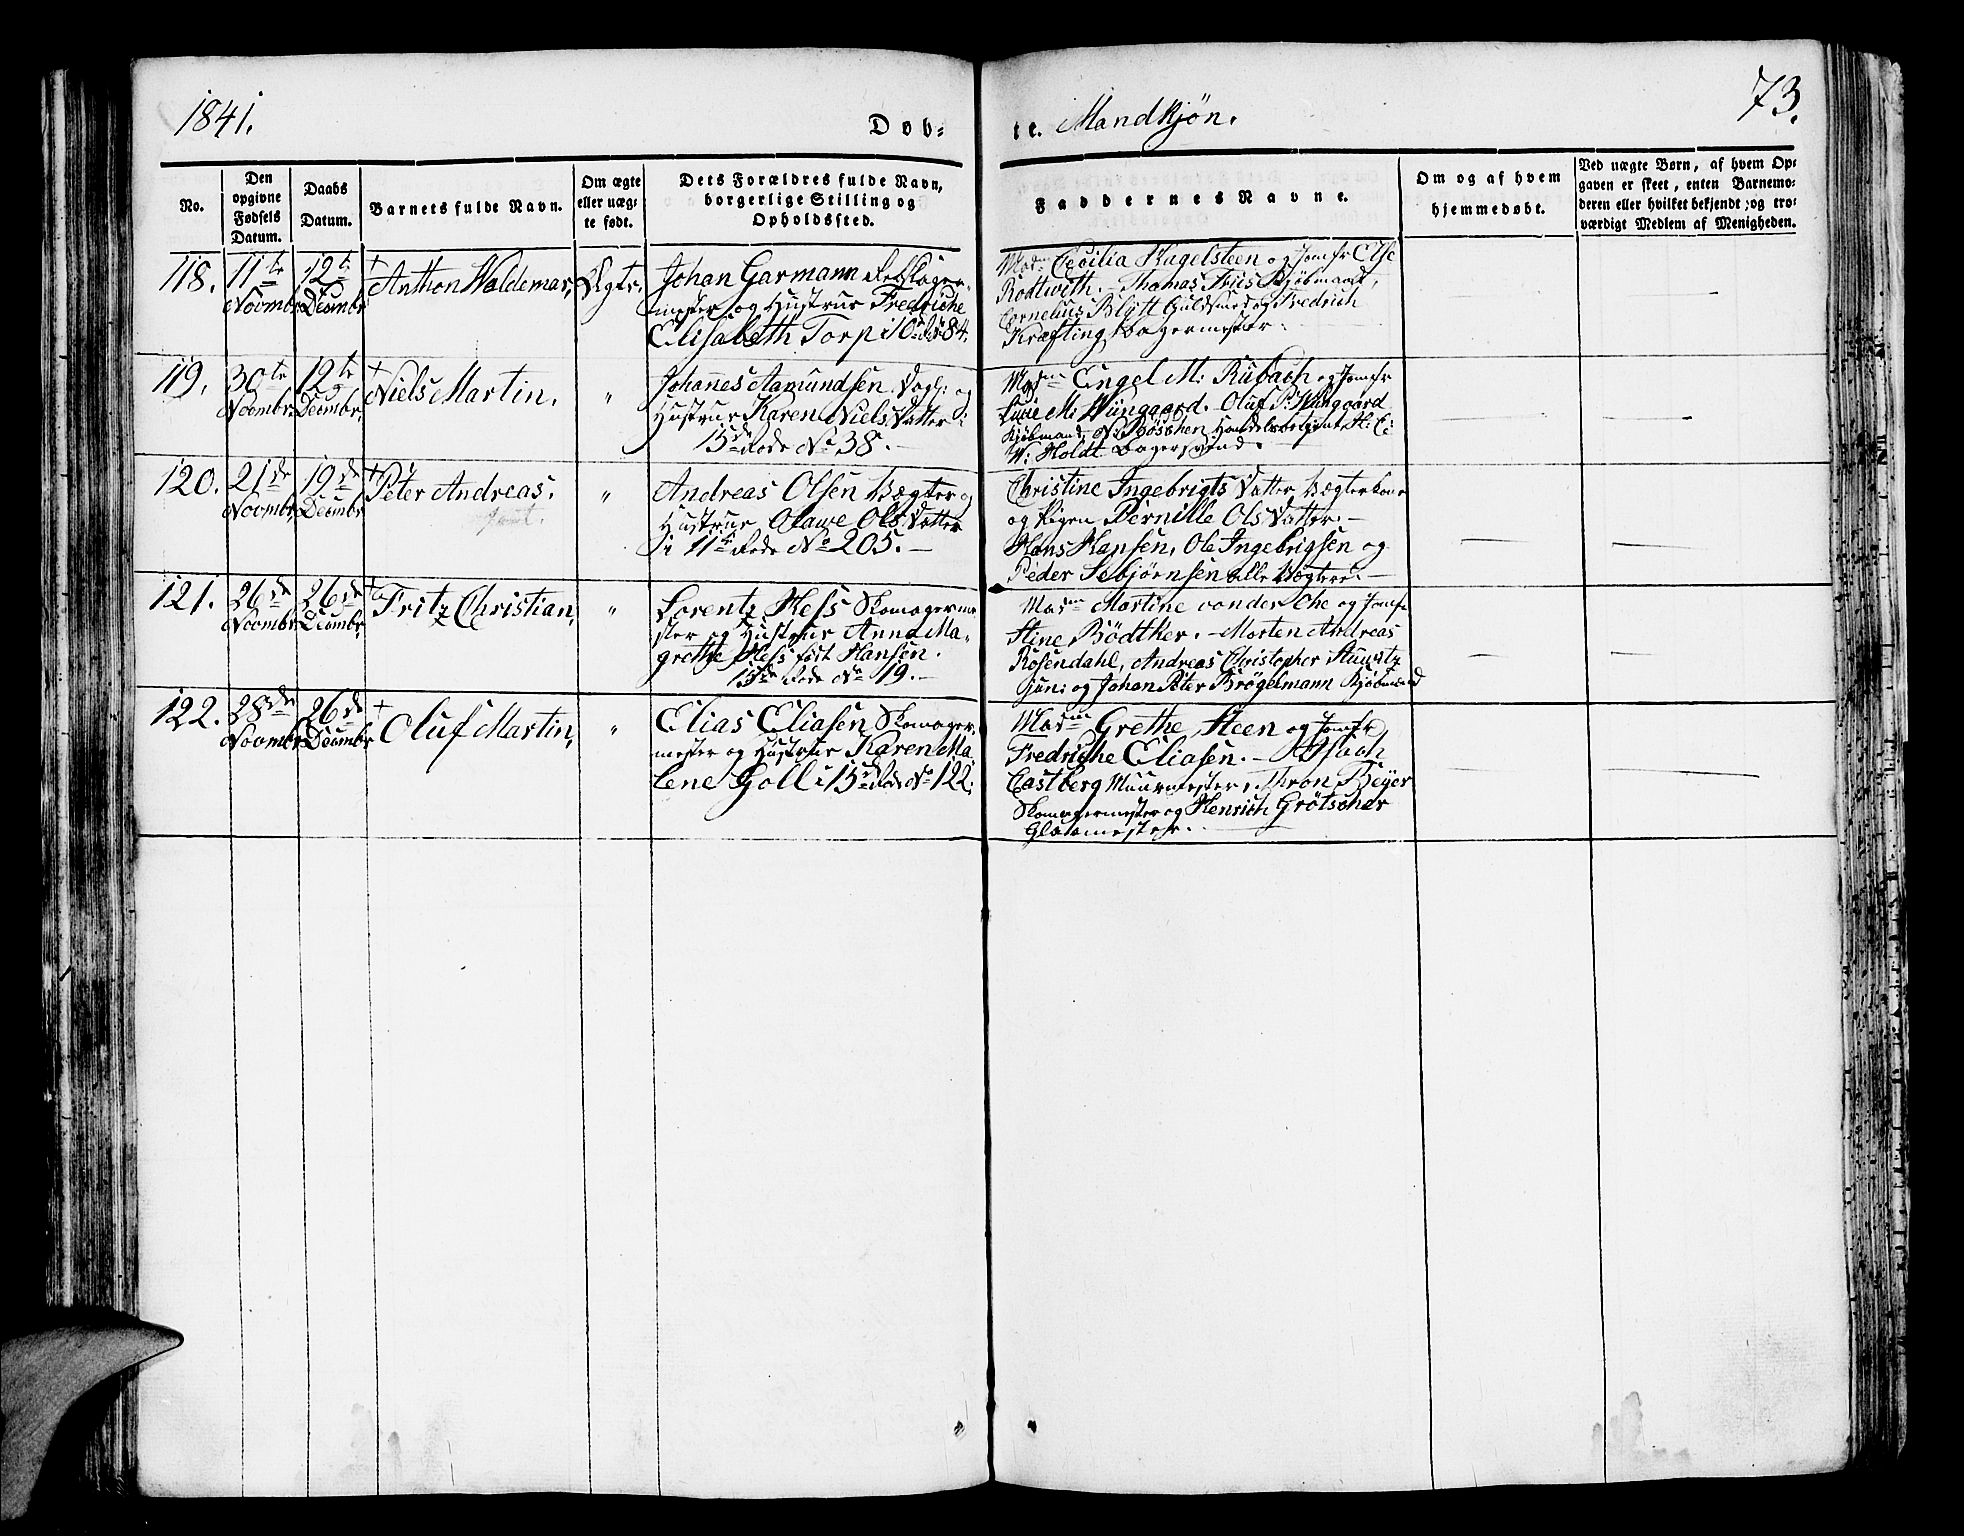 1841.
Døb=
te. Mandkjøn.
73.
No.
Den
opgivne
Fødsels
Datum.
Daabs
Datum.
Barnets fulde Navn.
Om ægte
eller uæg=
te født.
Dets Forældres fulde Navn,
borgerlige Stilling og
Opholdssted.
Faddernes Navne.
Om og af hvem
hjemmedøbt.
Ved uægte Børn, af hvem Op=
gaven er skeet, enten Barnemo=
deren eller hvilket bekjendt, og tro=
værdigt Medlem af Menigheden.
118. 11te Novmbr. 12te Decmbr. + Anthon Waldemar, Ægte,
Johan Garmann Rebslager-
mester og Hustrue Fredriche
Elisabeth Torp i 10de Rode 84.
Madme Cecilia Kagelsteen og Jomfr Else
Rodtwith. - Thomas Friis Kjøbmand,
Cornelius Blytt Guldsmed og Fredrich
Kræfting Bagermester.
119. 30te Novmbr. 12te Decmbr. + Niels Martin. "
Johannes Aamundsen Dagl: og
Hustrue Karen Niels Datter i
15de Rode No 38. -
Madme Engel M: Rubach og Jomfr
M: Wiingaard. Oluf P. Wiingaard
Kjøbmand, N. Bøschen Handelsbetjent H: C:
W: Holdt Bagersvend.
120. 21de Novmbr. 19de Decmbr. + Peter Andreas. "
Andreas Olsen Vægter og
Hustrue Olawe Ols Datter
i 11te Rode No 205. -
Christine Ingebrigts Datter Vægterkone
og Pigen Pernille Ols Datter. -
Hans Hansen, Ole Ingebrigsen og
Peder Sebjørnsen alle Vægtere. -
121. 26de Novmbr. 26de Decmbr. + Fritz Christian, "
Lorentz Hess Skomagerme-
ster og Hustrue Anna Ma-
grethe Hess født Hansen.
15de Rode No 19. -
Madme Martine vonder Ohe og Jomfr
Stine Bødtker. - Morten Andreas
Rosendahl, Andreas Christopher
jun: og Johan Peter Brøgelmann Kjøbmænd
122. 28de Novmbr. 26de Decmbr. + Oluf Martin, "
Elias Eliasen Skomager-
mester og Hustrue Karen Ma-
lene Goll i 15de Rode No 122.
Madme Grethe Steen og Jomfr
Fredriche Eliasen. - Isach
Castberg Muurmester, Thron Beyer
Skomagermester og Henrich Grötscher
Glasmester.